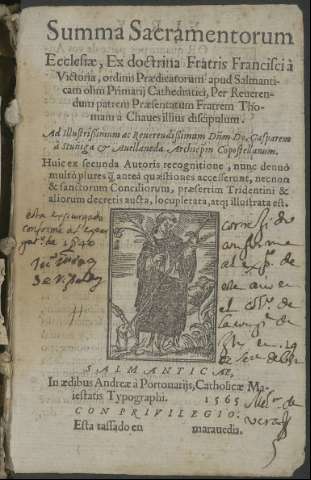 Summa Sacramentorum
Ecclesiæ, Ex doctrina Fratris Francisci à
Victoria, ordinis Prædicatorum apud Salmanti-
cam olim Primarij Cathedratici, Per Reueren-
dum patrem Præsentatum Fratrem Tho-
mam à Chaues illius discipulum.
Ad Illustrissimum ac Reuerendissimum Dñm Dō, Gasparem
à Stuñiga & Auellaneda, Archiepm Cōpostellanum.
Huic ex secunda Autoris recognitione, nunc denuò
multò plures q̃ anteà quæstiones accesserunt, necnon
& sanctorum Conciliorum, præsertim Tridentini &
aliorum decretis aucta, locupletata, atq; illustrata est.
esta expurgado
conforme al expur
gat.º de 1640
corregi.do
conforme
al exp.º de
este año en
el
SALMANTICAE,
In ædibus Andreæ à Portonarijs, Catholicæ Ma-
iestatis Typographi. 1565
CON PRIVILEGIO:
Esta tassado en marauedis.